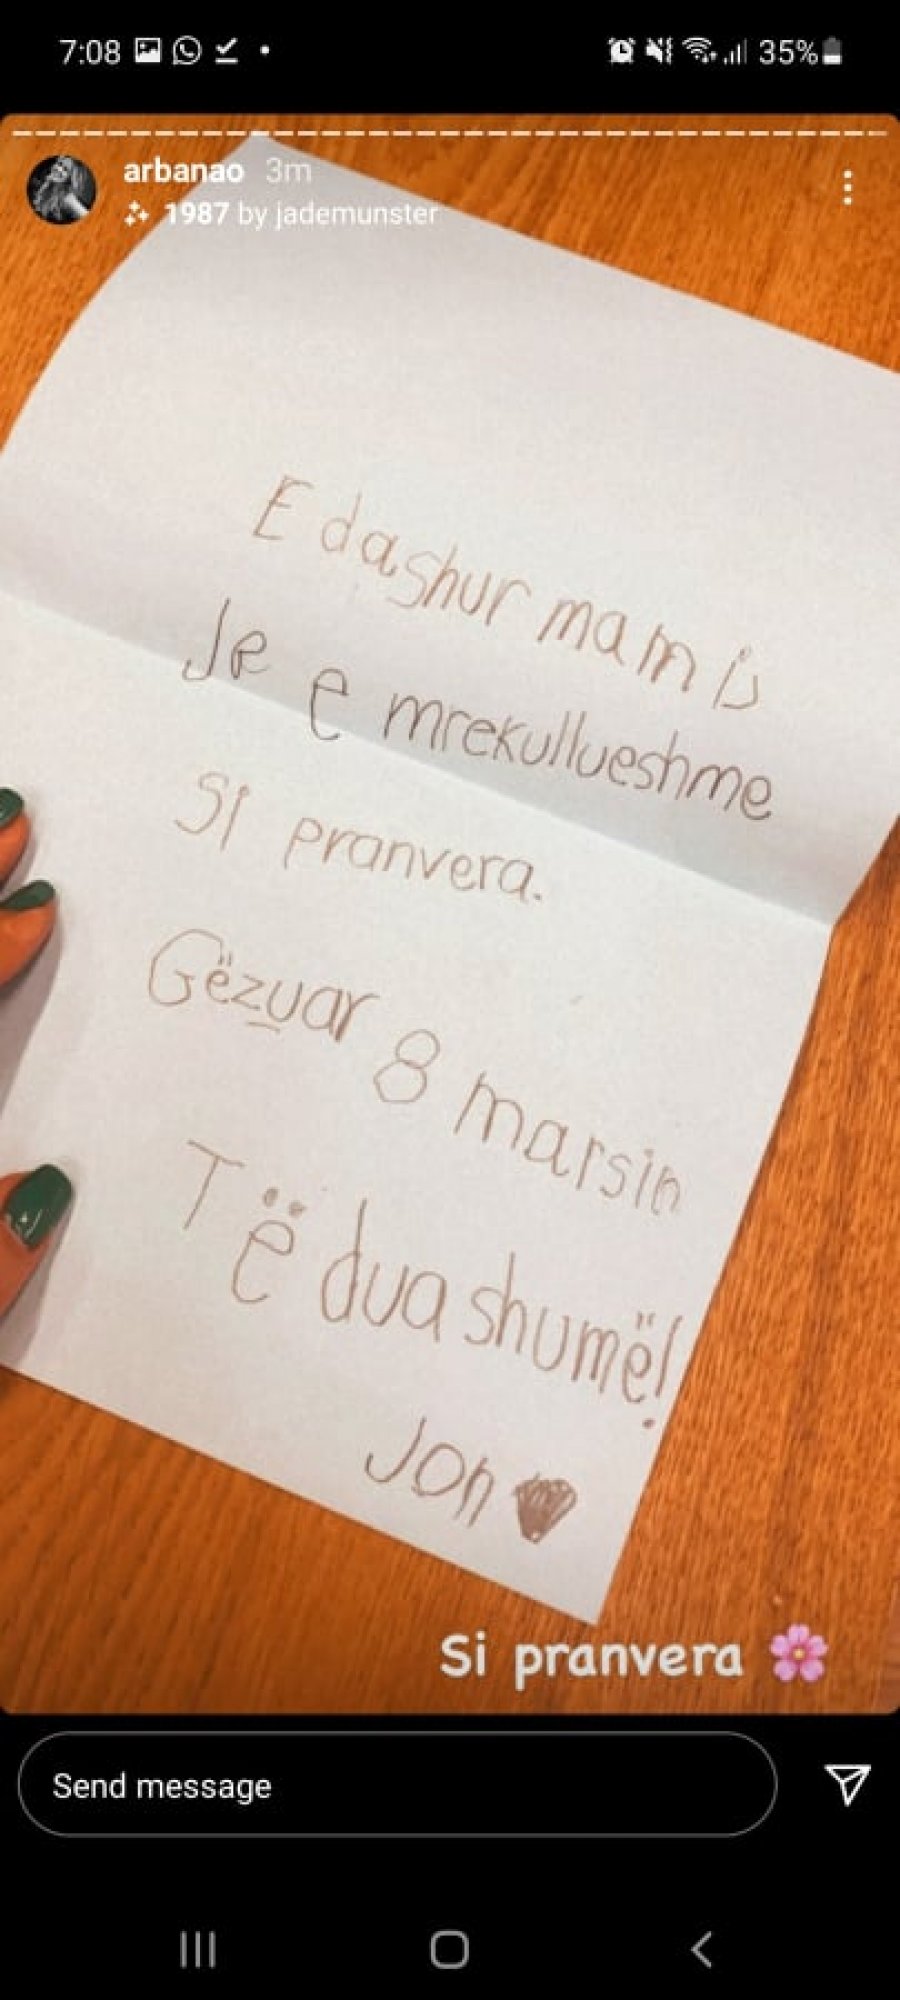 7:08 35%
arbanao 3m
1987 by jademunster
E dashur mami
Je e mrekullueshme
Si pranvera.
Gëzuar 8 marsin
Të dua shumë!
Jon
Si pranvera
Send message